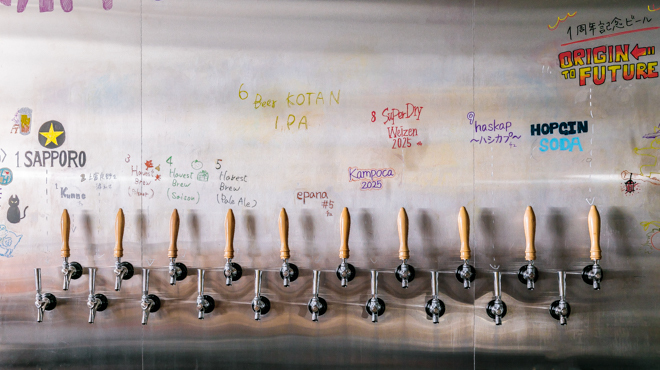 1周年記念ビール
ORIGIN
TO FUTURE
6 Beer KOTAN
I.P.A
8 SuperDry
Weizen
2025
9 haskap
〜ハシカプ〜
HOPGIN
SODA
1 SAPPORO
Kunne
3 Havest
Brew
4 Havest
Brew
(Saison)
5 Havest
Brew
(Pale Ale)
epana
#5
Kampoca
2025